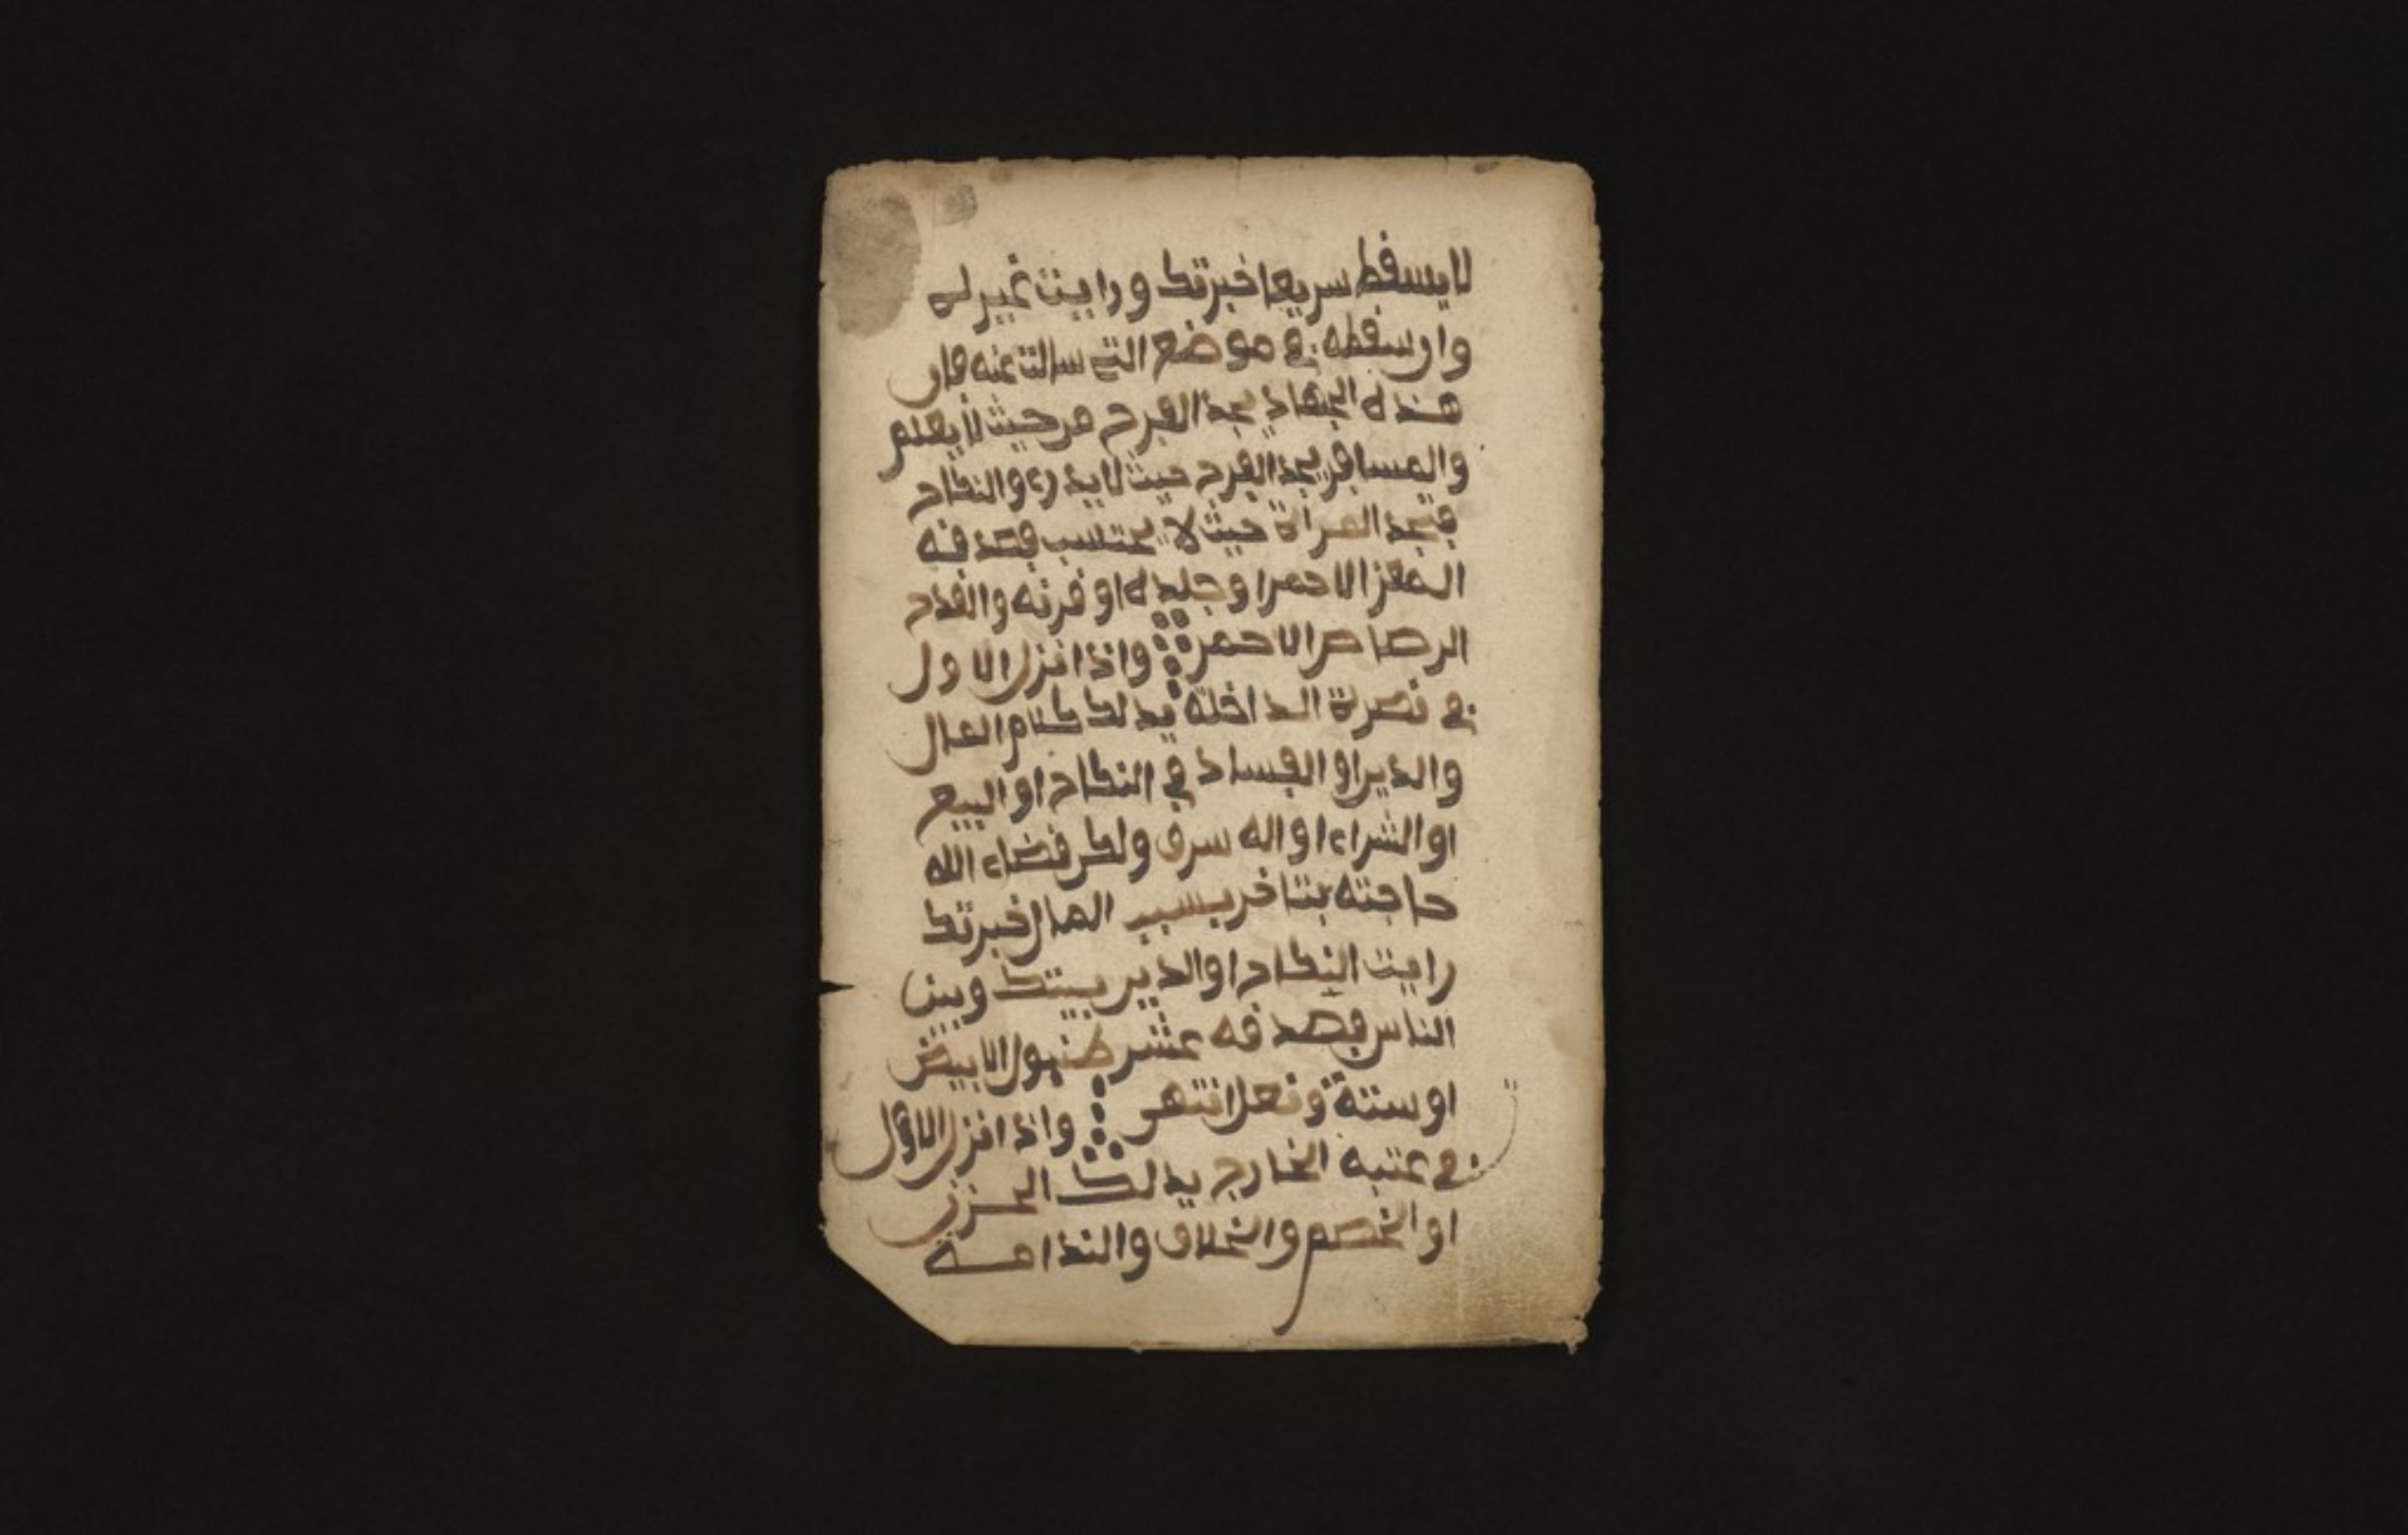 لا يسقط سريعا خبرتك ورايت غيرك
وان سقطه في موضع التي سالت عنه فان
هذه الجهاد يجد الفرح من حيث لا يعلم
والمسافر يجد الفرح حيث لا يدري والنكاح
فتجد المراة حيث لا يحتسب فصدقه
المعز الاحمر او جلده او قرنه والقدح
الرصاص الاحمر واذا نزل الاول
في نصرة الداخلة يدلك كلام المال
والدين او الفساد في النكاح او البيع
او الشراء او اله سرق ولكن قضاء الله
حاجته بتاخر بسبب المال خبرتك
رايت النكاح او الدين بينك وبين
الناس فصدقه عشر الابيض
او ستة ونعل انتهى واذا نزل الاول
في عتبة الخارج يدلك الحزن
او الخصم والخلاف والندامة